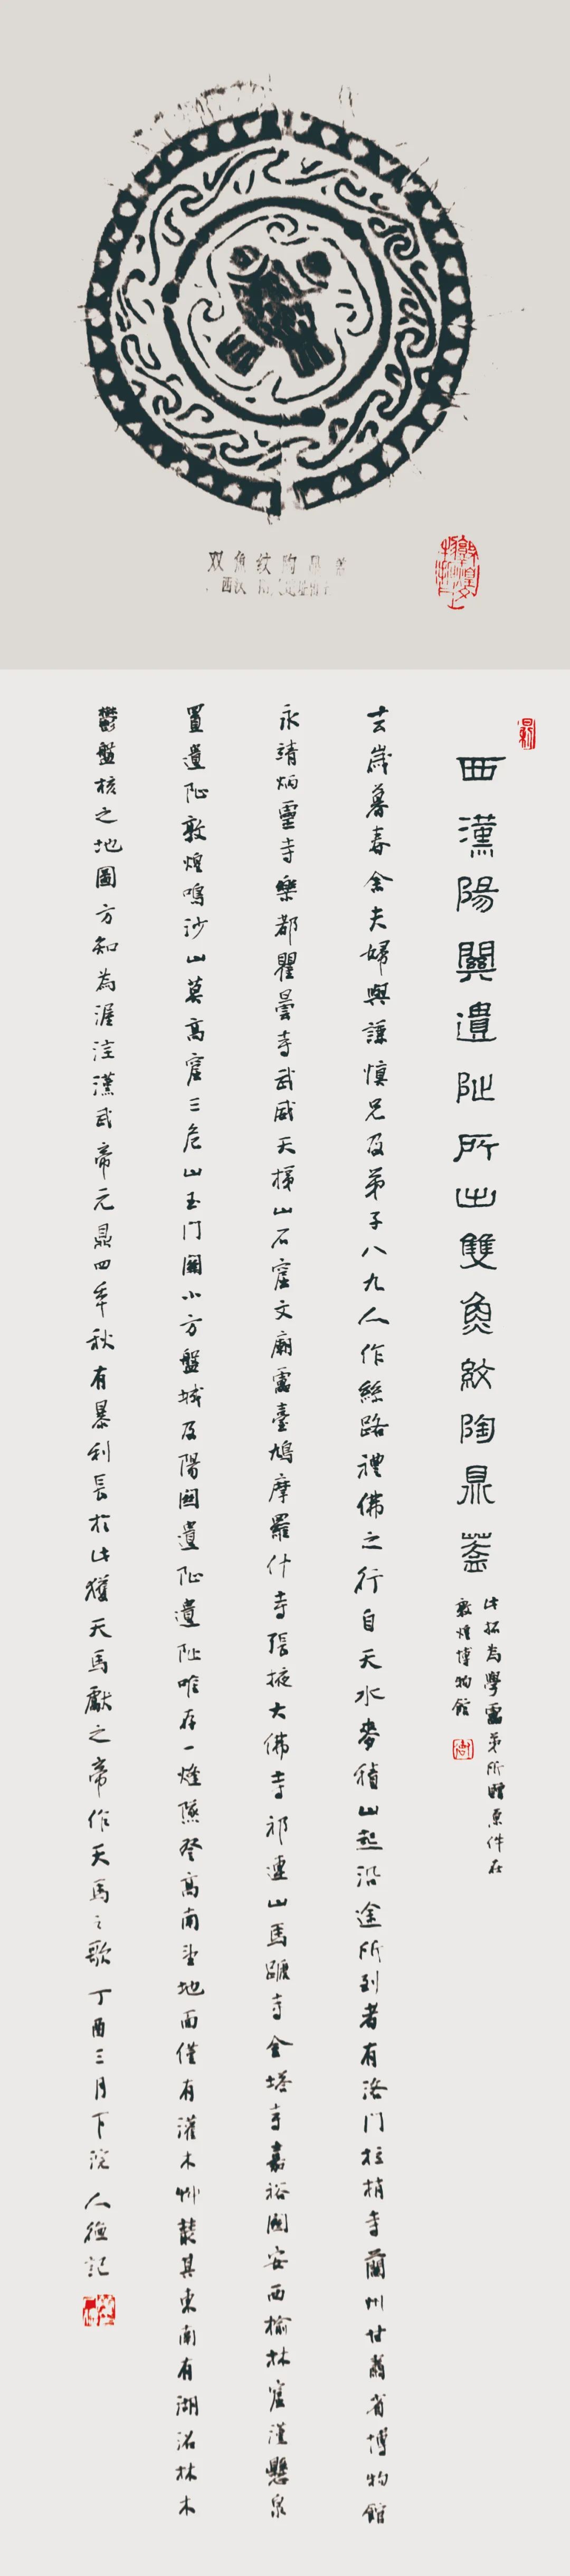 双魚纹陶鼎盖
西汉
敦煌博物館
西漢陽關遺阯所出雙魚紋陶鼎蓋
此拓為學雷弟所贈原件在
敦煌博物館
去歲暮春余夫婦與謙慎兄及弟子八九人作絲路禮佛之行自天水麥積山起沿途所到者有洛門拉梢寺蘭州甘肅省博物館
永靖炳靈寺樂都瞿曇寺武威天梯山石窟文廟雷臺鳩摩羅什寺張掖大佛寺祁連山馬蹏寺金塔寺嘉裕關安西榆林窟漢懸泉
置遺阯敦煌鳴沙山莫高窟三危山玉门關小方盤城及陽關遺阯遺阯唯存一燧隧登高南望地面僅有灌木艸叢其東南有湖沼林木
鬱盤核之地圖方知為渥洼漢武帝元鼎四年秋有暴利長於此獲天馬獻之帝作天馬之歌丁酉三月下浣人德記